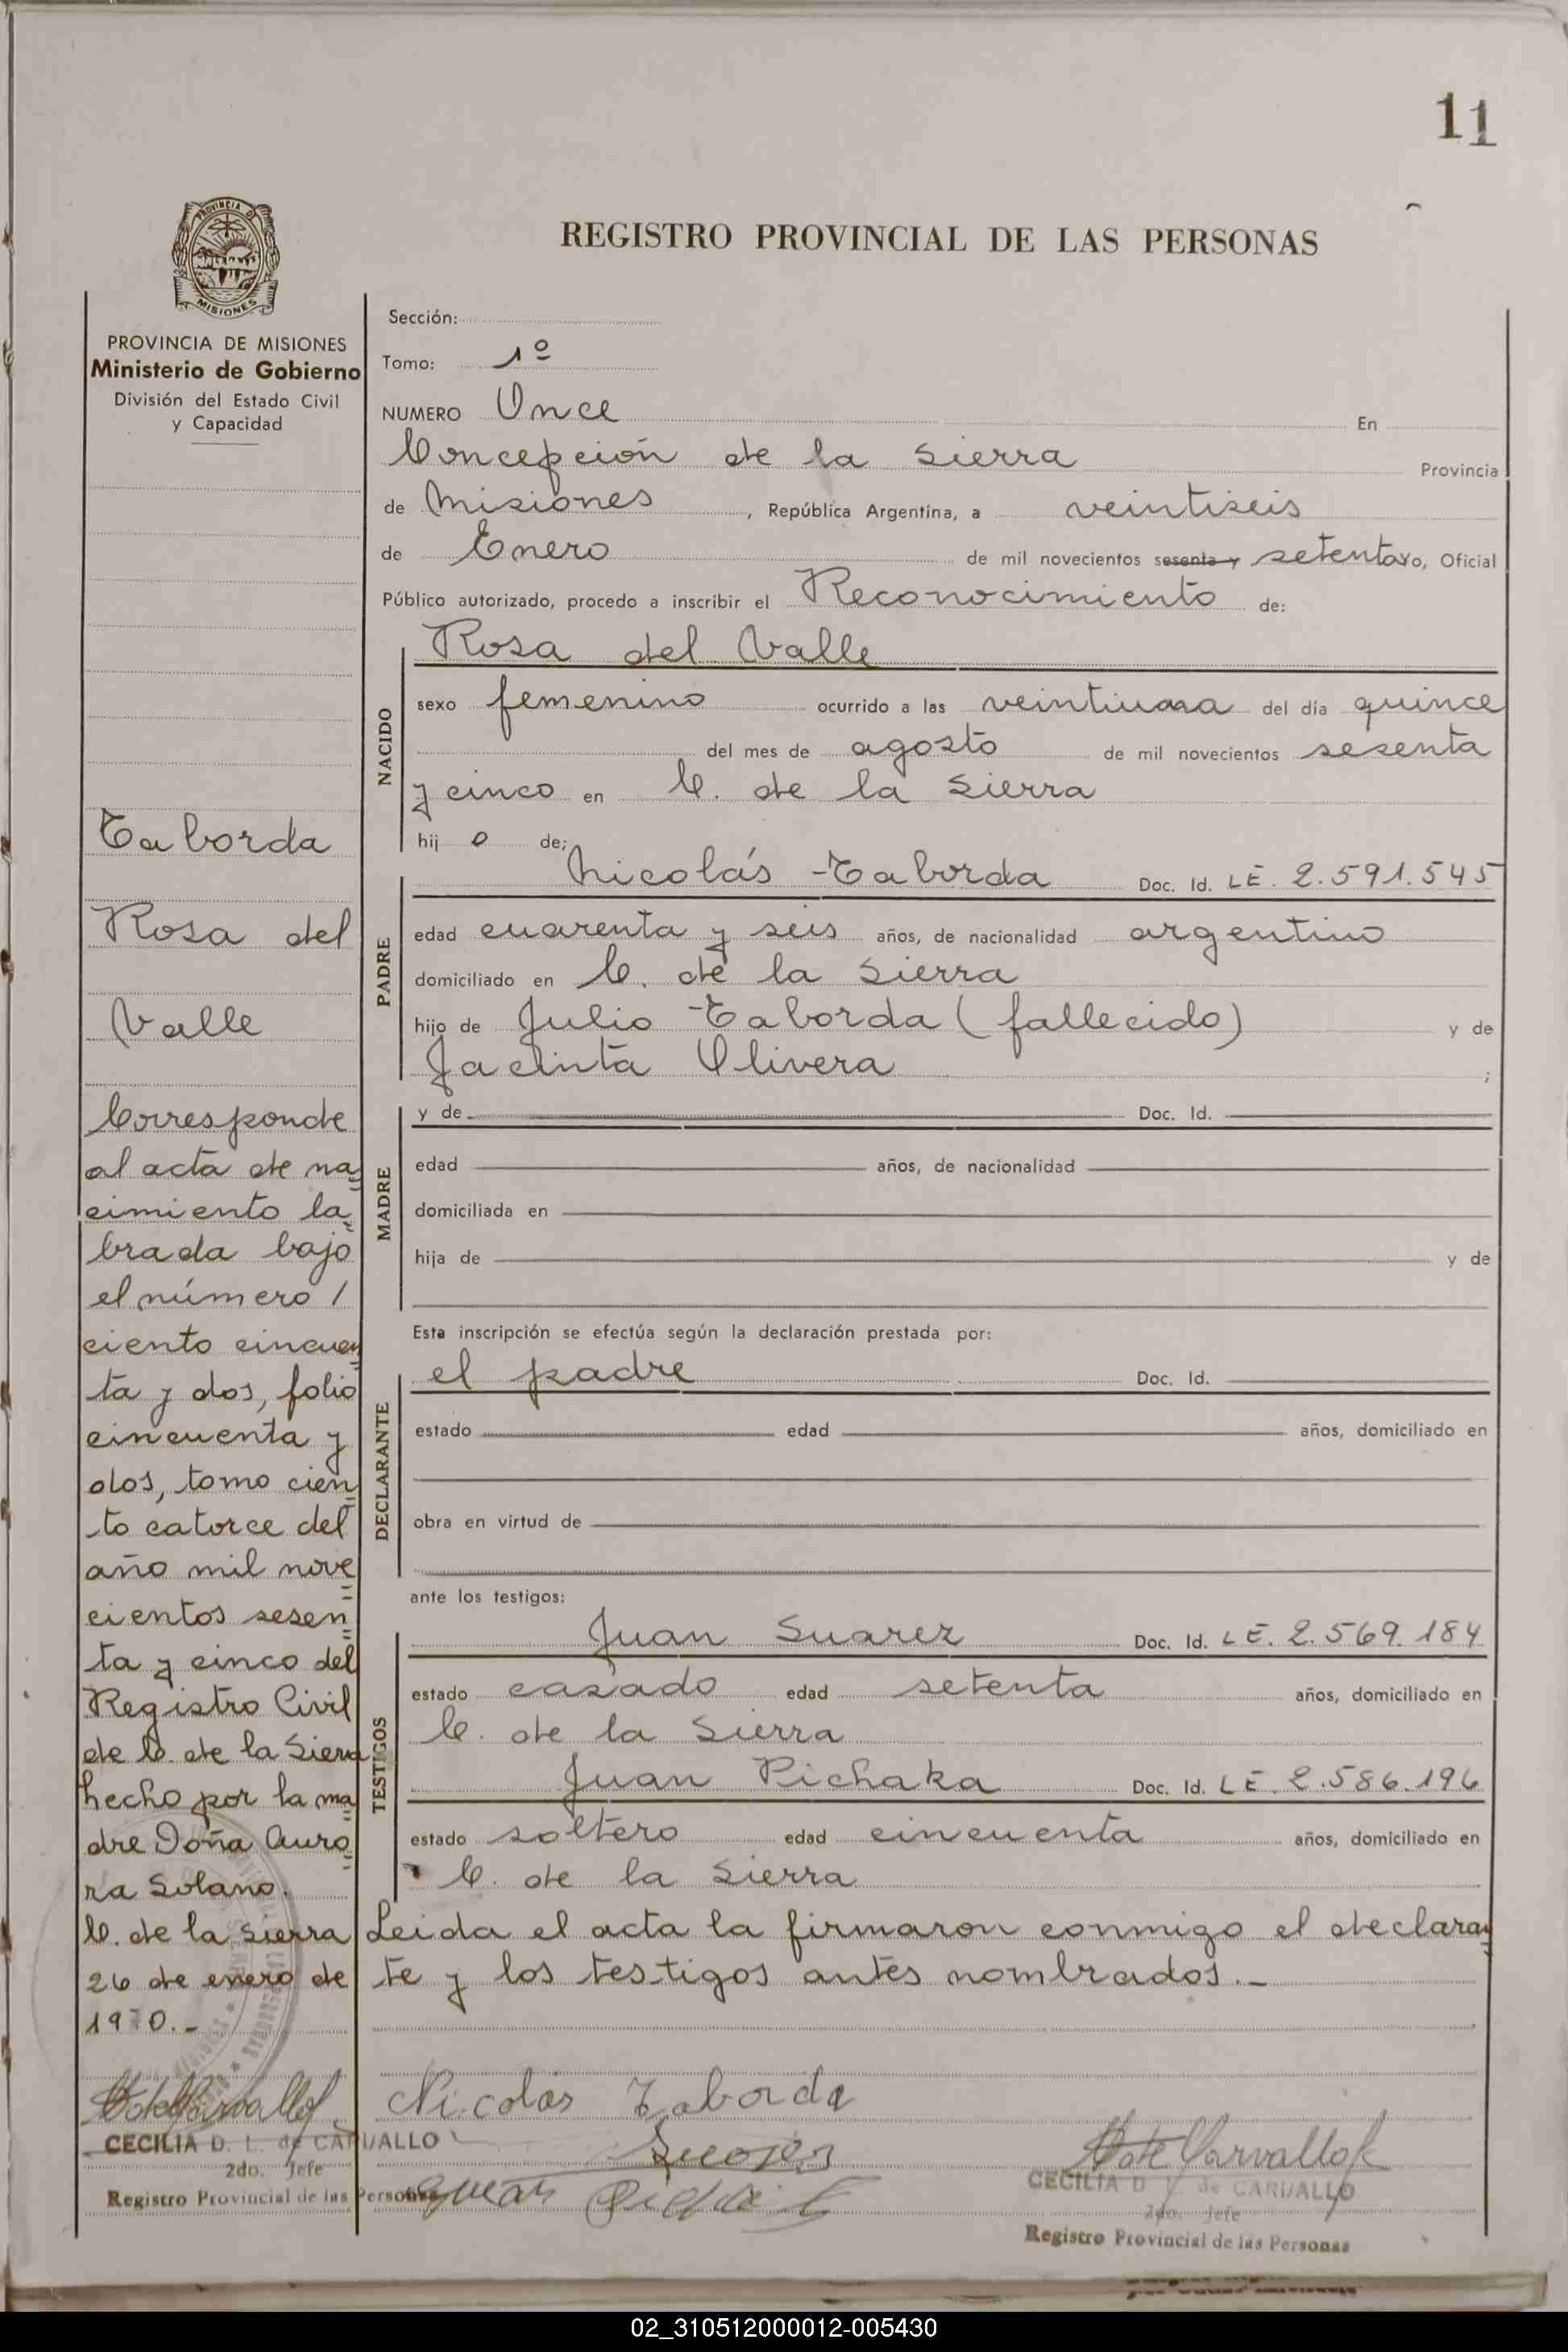 11
REGISTRO PROVINCIAL DE LAS PERSONAS
PROVINCIA DE MISIONES
MISIONES
PROVINCIA DE MISIONES
Ministerio de Gobierno
División del Estado Civil
y Capacidad
Taborda
Rosa del
Valle
Corresponde
al acta de na
cimiento la
brada bajo
el número /
ciento cincuen
ta y dos, folio
cincuenta y
dos, tomo cien
to catorce del
año mil nove
cientos sesen
ta y cinco del
Registro Civil
de C. de la Sierra
hecho por la ma
dre Doña Auro
ra Solano.
C. de la Sierra
26 de enero de
1970.-
CECILIA D. L. de CARVALLO
2do. Jefe
Registro Provincial de las Personas
Sección:
Tomo: 1º
NUMERO Once En
Concepción de la Sierra Provincia
de Misiones, República Argentina, a veintiseis
de Enero de mil novecientos sesenta y setenta yo, Oficial
Público autorizado, procedo a inscribir el Reconocimiento de:
NACIDO
Rosa del Valle
sexo femenino ocurrido a las veintiuna del día quince
del mes de agosto de mil novecientos sesenta
y cinco en C. de la Sierra
hij o de;
PADRE
Nicolás Taborda Doc. Id. LE. 2.591.545
edad cuarenta y seis años, de nacionalidad argentino
domiciliado en C. de la Sierra
hijo de Julio Taborda (fallecido) y de
Jacinta Olivera ;
MADRE
y de Doc. Id.
edad años, de nacionalidad
domiciliada en
hija de y de
Esta inscripción se efectúa según la declaración prestada por:
DECLARANTE
el padre Doc. Id.
estado edad años, domiciliado en
obra en virtud de
ante los testigos:
TESTIGOS
Juan Suarez Doc. Id. LE. 2.569.184
estado casado edad setenta años, domiciliado en
C. de la Sierra
Juan Pichaka Doc. Id. LE. 2.586.196
estado soltero edad cincuenta años, domiciliado en
C. de la Sierra
Leida el acta la firmaron conmigo el declaran
te y los testigos antes nombrados.-
Nicolás Taborda
CECILIA D de CARVALLO
2do. Jefe
Registro Provincial de las Personas
02_310512000012-005430